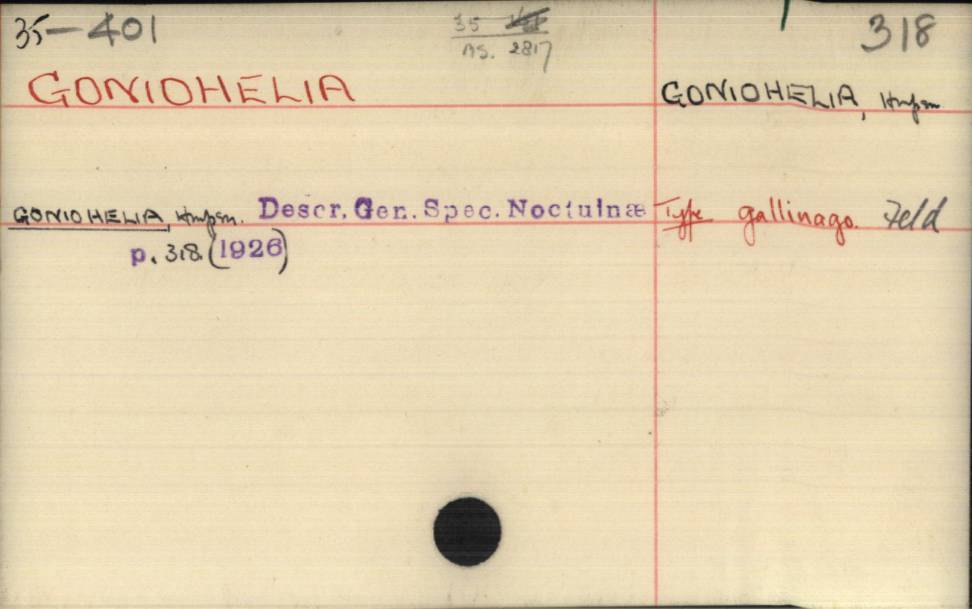 35-401
35
AS. 2817
318
GONIOHELIA
GONIOHELIA, Hmpsn
GONIOHELIA, Hmpsn. Descr. Gen. Spec. Noctuinæ
p. 318. (1926)
Type gallinago. Feld